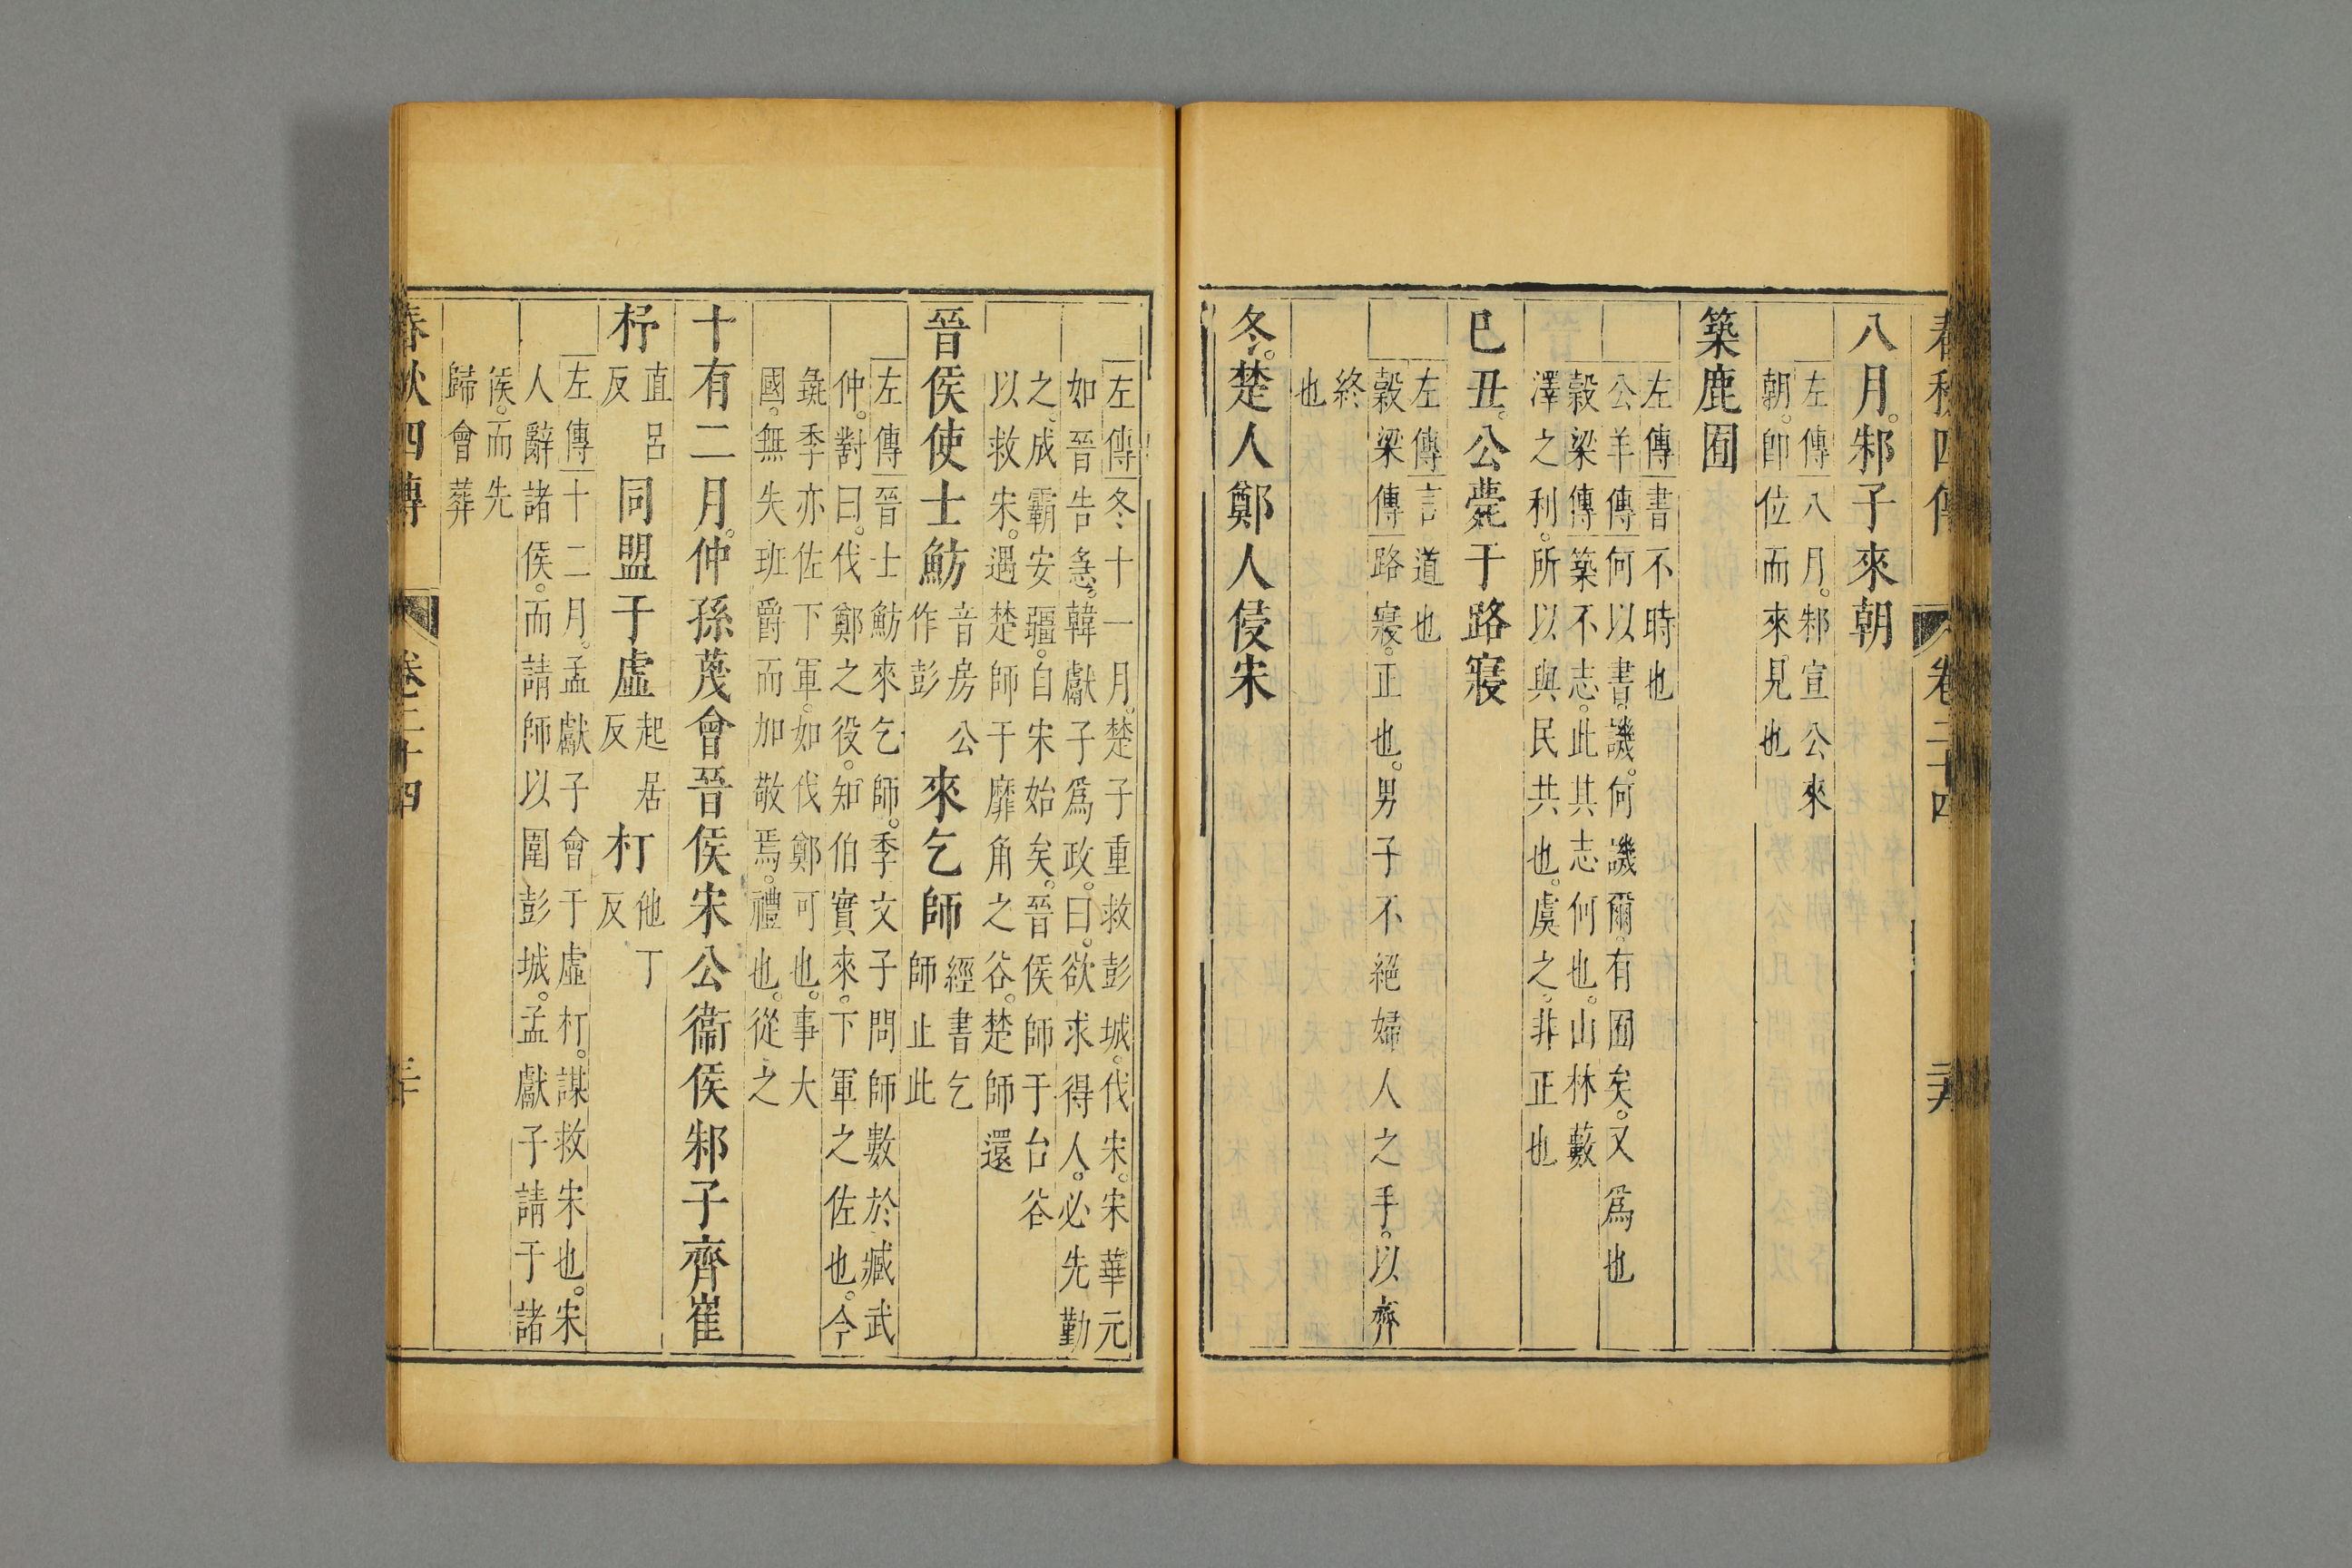 春秋四傳 卷二十四 二十九
八月。邾子來朝
左傳八月。邾宣公來
朝。卽位而來。見也
築鹿囿
左傳書不時也
公羊傳何以書。譏。何譏爾。有囿矣。又爲也
穀梁傳築不志。此其志何也。山林藪
澤之利。所以與民共也。虞之。非正也
巳丑。公薨于路寢
左傳言道也
穀梁傳路寢。正也。男子不絕婦人之手。以齊
終
也
冬。楚人鄭人侵宋
左傳冬、十一月。楚子重救彭城。伐宋。宋華元
如晉告急。韓獻子爲政。曰。欲求得人。必先勤
之、成霸安疆。自宋始矣。晉侯師于台谷
以救宋。遇楚師于靡角之谷。楚師還
晉侯使士魴音房公作彭來乞師經書乞師止此
左傳晉士魴來乞師。季文子問師數於臧武
仲。對曰。伐鄭之役。知伯實來。下軍之佐也。今
彘季亦佐下軍。如伐鄭可也。事大
國。無失班爵而加敬焉。禮也。從之
十有二月。仲孫蔑會晉侯宋公衞侯邾子齊崔
杼直呂反同盟于虛起居反朾他丁反
左傳十二月。孟獻子會于虛朾。謀救宋也。宋
人辭諸侯。而請師以圍彭城。孟獻子請于諸
侯。而先
歸會葬
春秋四傳 卷二十四 三十